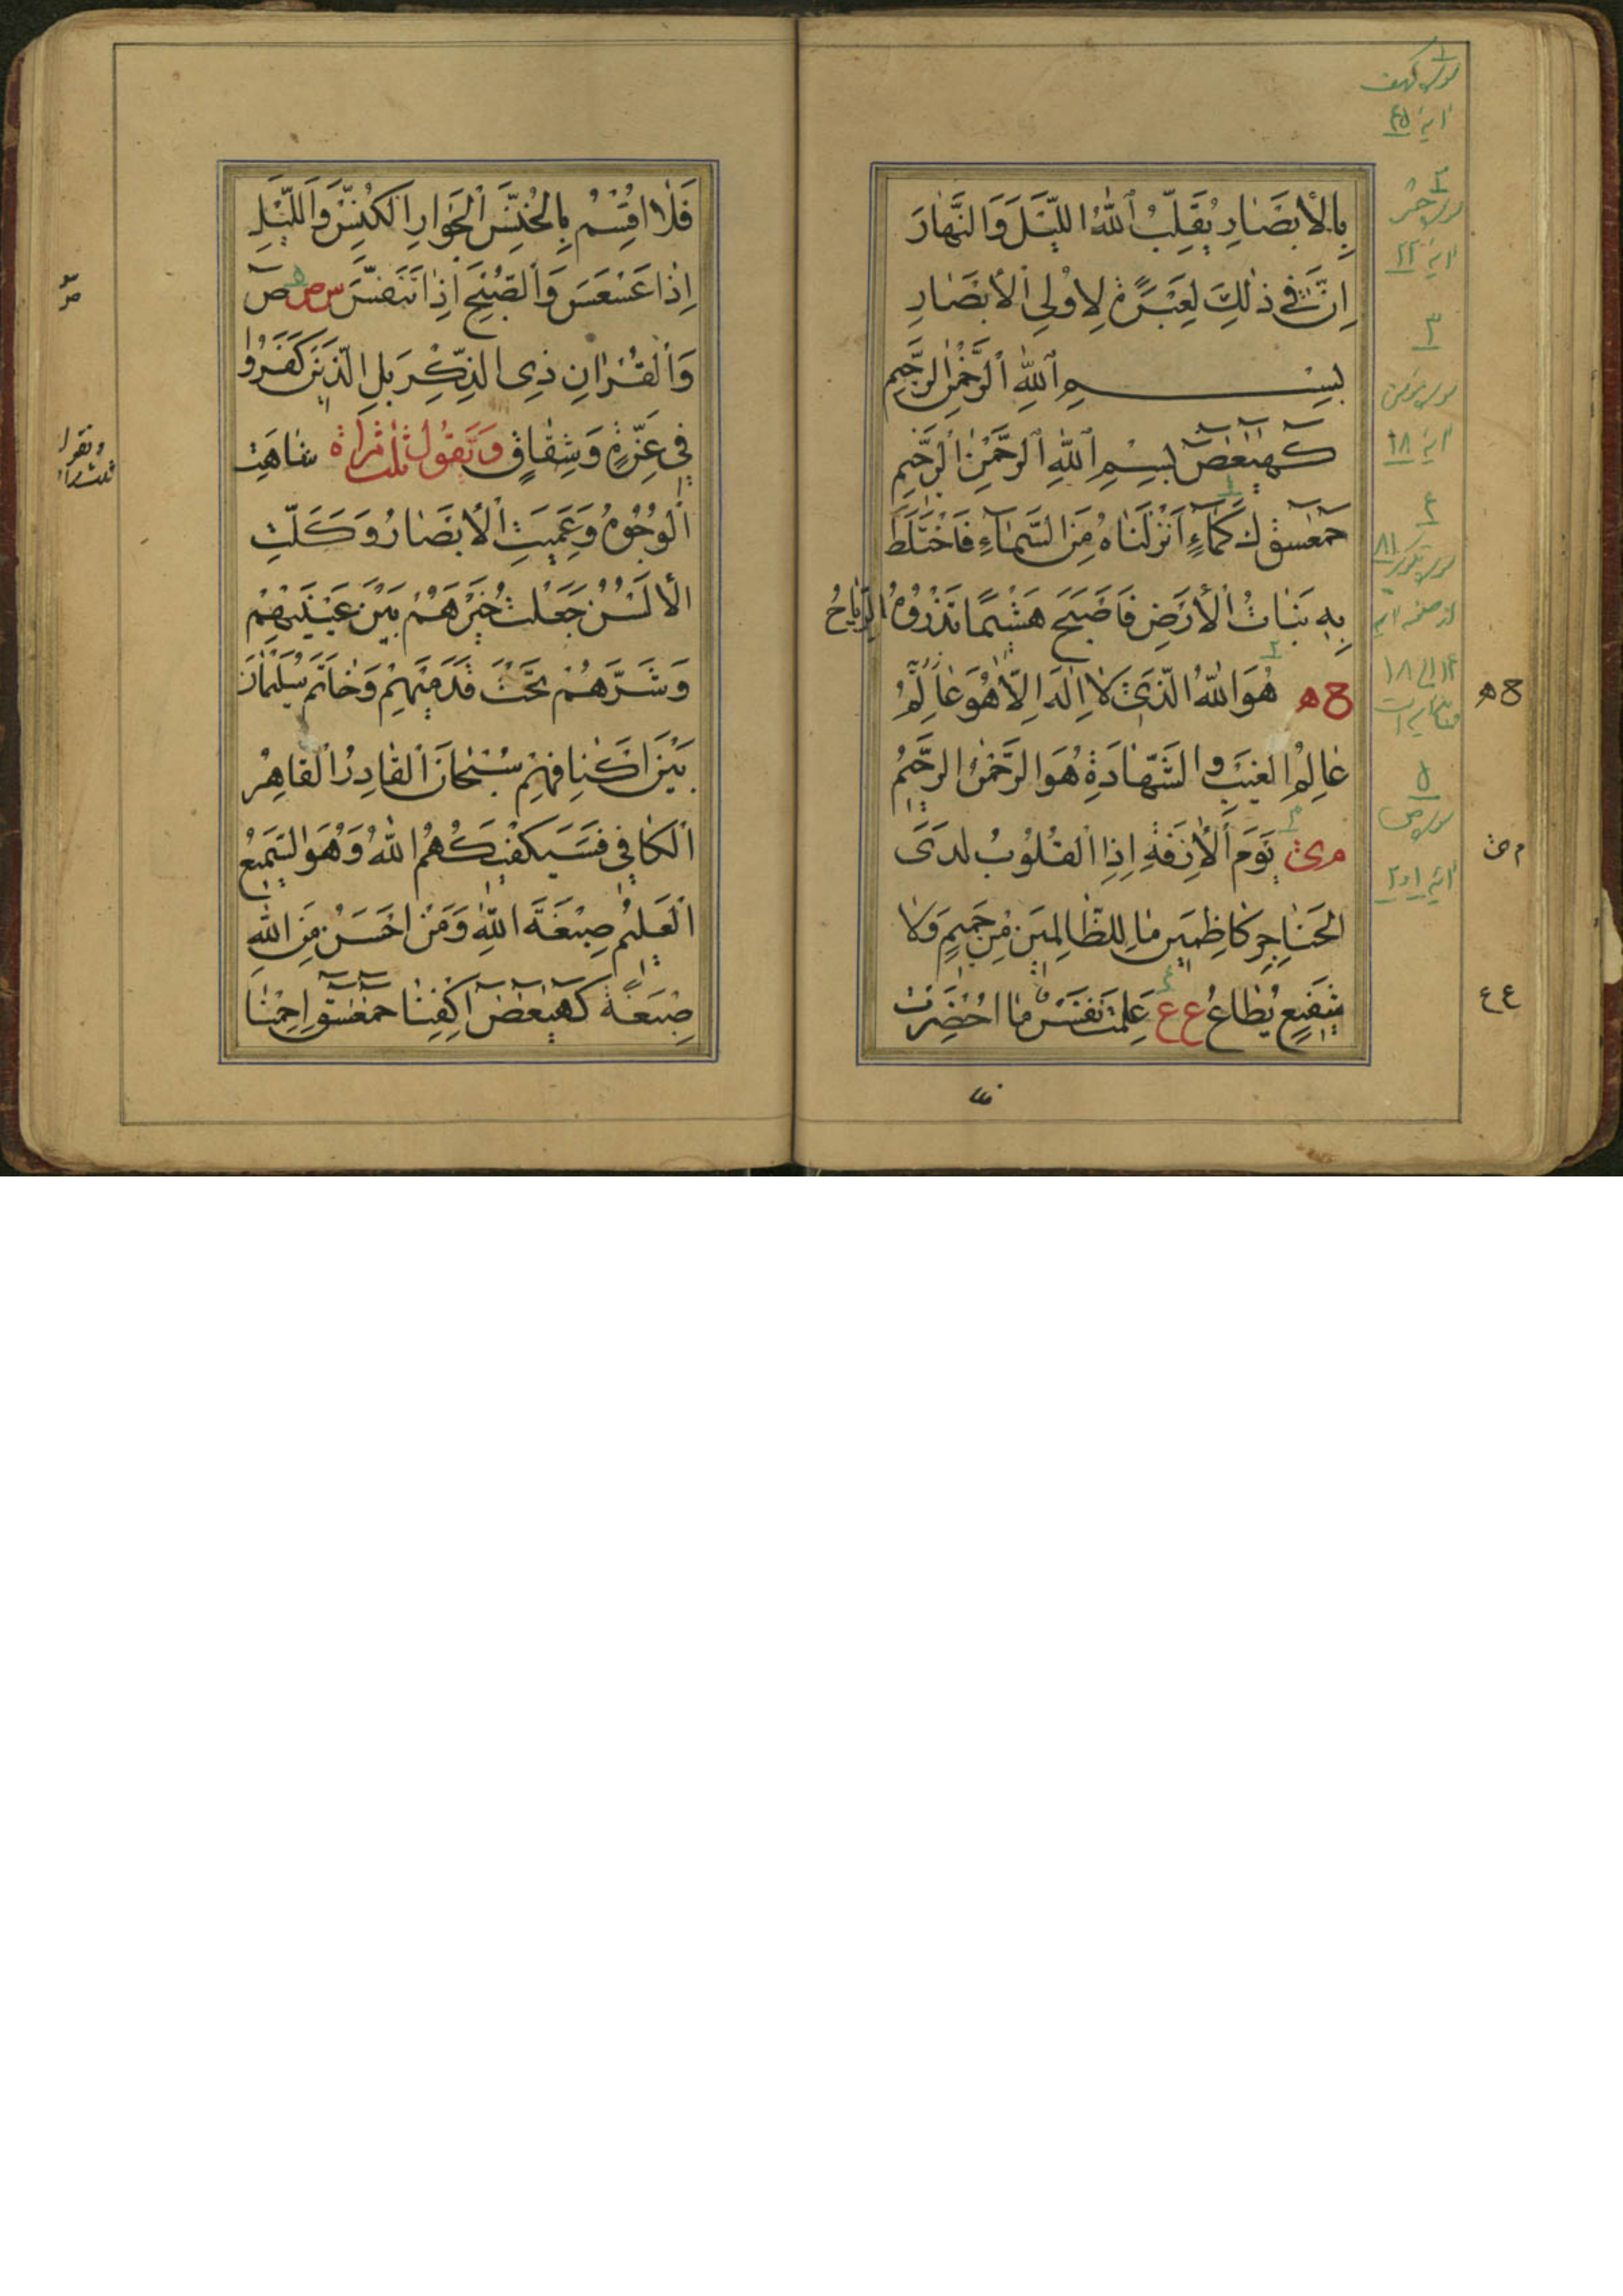 بِالْأَبْصَارِ يُقَلِّبُ اللهُ اللَّيْلَ وَالنَّهَارَ
اِنَّ فِي ذٰلِكَ لَعِبْرَةً لِاُولِي الْاَبْصَارِ
بِسْمِ اللهِ الرَّحْمٰنِ الرَّحِيمِ
كهيعص بِسْمِ اللهِ الرَّحْمٰنِ الرَّحِيمِ
حمعسق كَمَاءٍ اَنْزَلْنَاهُ مِنَ السَّمَاءِ فَاخْتَلَطَ
بِهِ نَبَاتُ الْاَرْضِ فَاَصْبَحَ هَشِيمًا تَذْرُوهُ الرِّيَاحُ
هُوَ اللهُ الَّذِي لَا اِلٰهَ اِلَّا هُوَ عَالِمُ
عَالِمُ الْغَيْبِ وَالشَّهَادَةِ هُوَ الرَّحْمٰنُ الرَّحِيمُ
يَوْمَ الْاٰزِفَةِ اِذِ الْقُلُوبُ لَدَى
الْحَنَاجِرِ كَاظِمِينَ مَا لِلظَّالِمِينَ مِنْ حَمِيمٍ وَلَا
شَفِيعٍ يُطَاعُ ع ع عَلِمَتْ نَفْسٌ مَا اَحْضَرَتْ
سورة كهف
اية ٤٥
٢
سورة حشر
اية ٢٢
٣
سورة مؤمن
اية ١٨
٤
سورة تكوير ٨١
٥
سورة ص
اية ١و٢
ع ع
فَلَا اُقْسِمُ بِالْخُنَّسِ الْجَوَارِ الْكُنَّسِ وَاللَّيْلِ
اِذَا عَسْعَسَ وَالصُّبْحِ اِذَا تَنَفَّسَ س ص ص
وَالْقُرْاٰنِ ذِي الذِّكْرِ بَلِ الَّذِينَ كَفَرُوا
فِي عِزَّةٍ وَشِقَاقٍ وَتَقُولُ ثَلٰثَ مَرَّاةٍ شَاهَتِ
الْوُجُوهُ وَعَمِيَتِ الْاَبْصَارُ وَكَلَّتِ
الْاَلْسُنُ جَعَلْتُ خَيْرَهُمْ بَيْنَ عَيْنَيْهِمْ
وَشَرَّهُمْ تَحْتَ قَدَمَيْهِمْ وَخَاتَمَ سُلَيْمَانَ
بَيْنَ اَكْتَافِهِمْ سُبْحَانَ الْقَادِرُ الْقَاهِرُ
الْكَافِي فَسَيَكْفِيكَهُمُ اللهُ وَهُوَ السَّمِيعُ
الْعَلِيمُ صِبْغَةَ اللهِ وَمَنْ اَحْسَنُ مِنَ اللهِ
صِبْغَةً كهيعص اِكْفِنَا حمعسق اِحْمِنَا